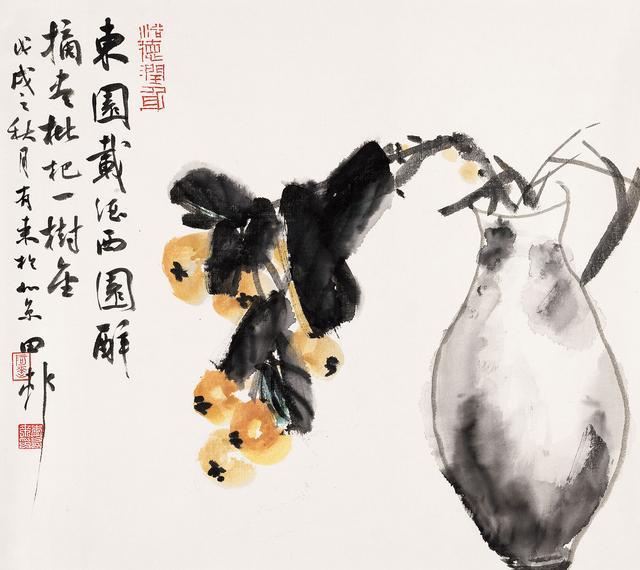 浴德潤身
東園載酒西園醉
摘尽枇杷一樹金
戊戌之秋月有来於北京田邨